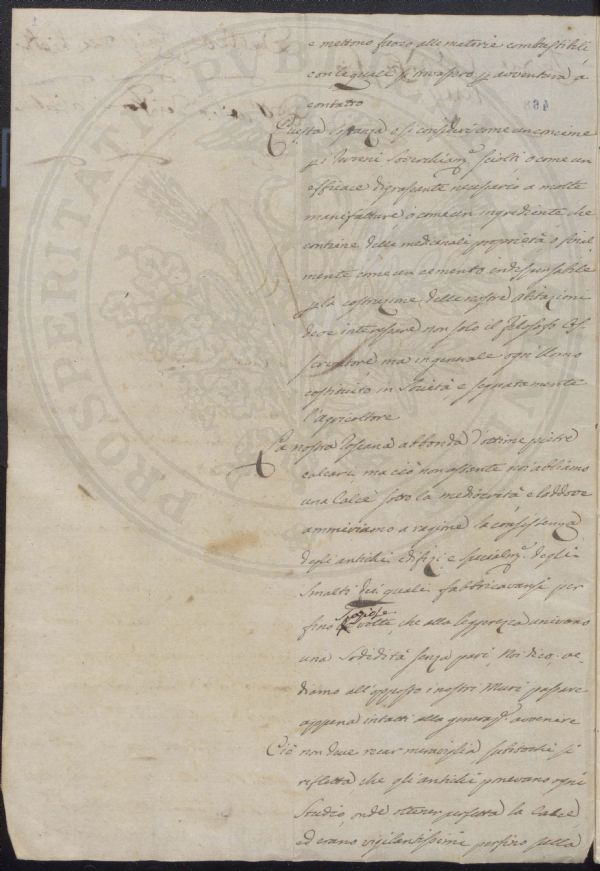 e mettono fuoco alle materie combustibili,
con le quali si trovassero per avventura a
contatto
Questa sostanza o si consideri come un concime
pei terreni soverchiam.e sciolti, o come un
efficace digrassante necessario a molte
manifatture, o come un ingrediente che
contiene delle medicinali proprietà, o final
mente come un cemento indispensabile
p la costruzione delle nostre abitazioni
deve interessare non solo il filosofo Os
servatore, ma in generale ogni Uomo
costituito in Società, e segnatamente
l'agricoltore
La nostra Toscana abbonda d'ottime pietre
calcarie, ma ciò non ostante noi abbiamo
una Calce sotto la mediocrità, e laddove
ammiriamo a ragione la consistenza
degli antichi edifizi, e specialm.e degli
Smalti dei quali fabbricavansi per
fino spaziose volte, che alla leggerezza univano
una Sodidità senza pari, Noi dico, ve-
diamo all'opposto i nostri Muri passare
appena intatti alla generaz.e avvenire
Ciò non deve recar meraviglia, subitochè si
rifletta che gli antichi ponevano ogni
Studio, onde ottener perfetta la Calce,
ed erano vigilantissimi perfino sulla
468
PROSPERITATI PUBLICAE